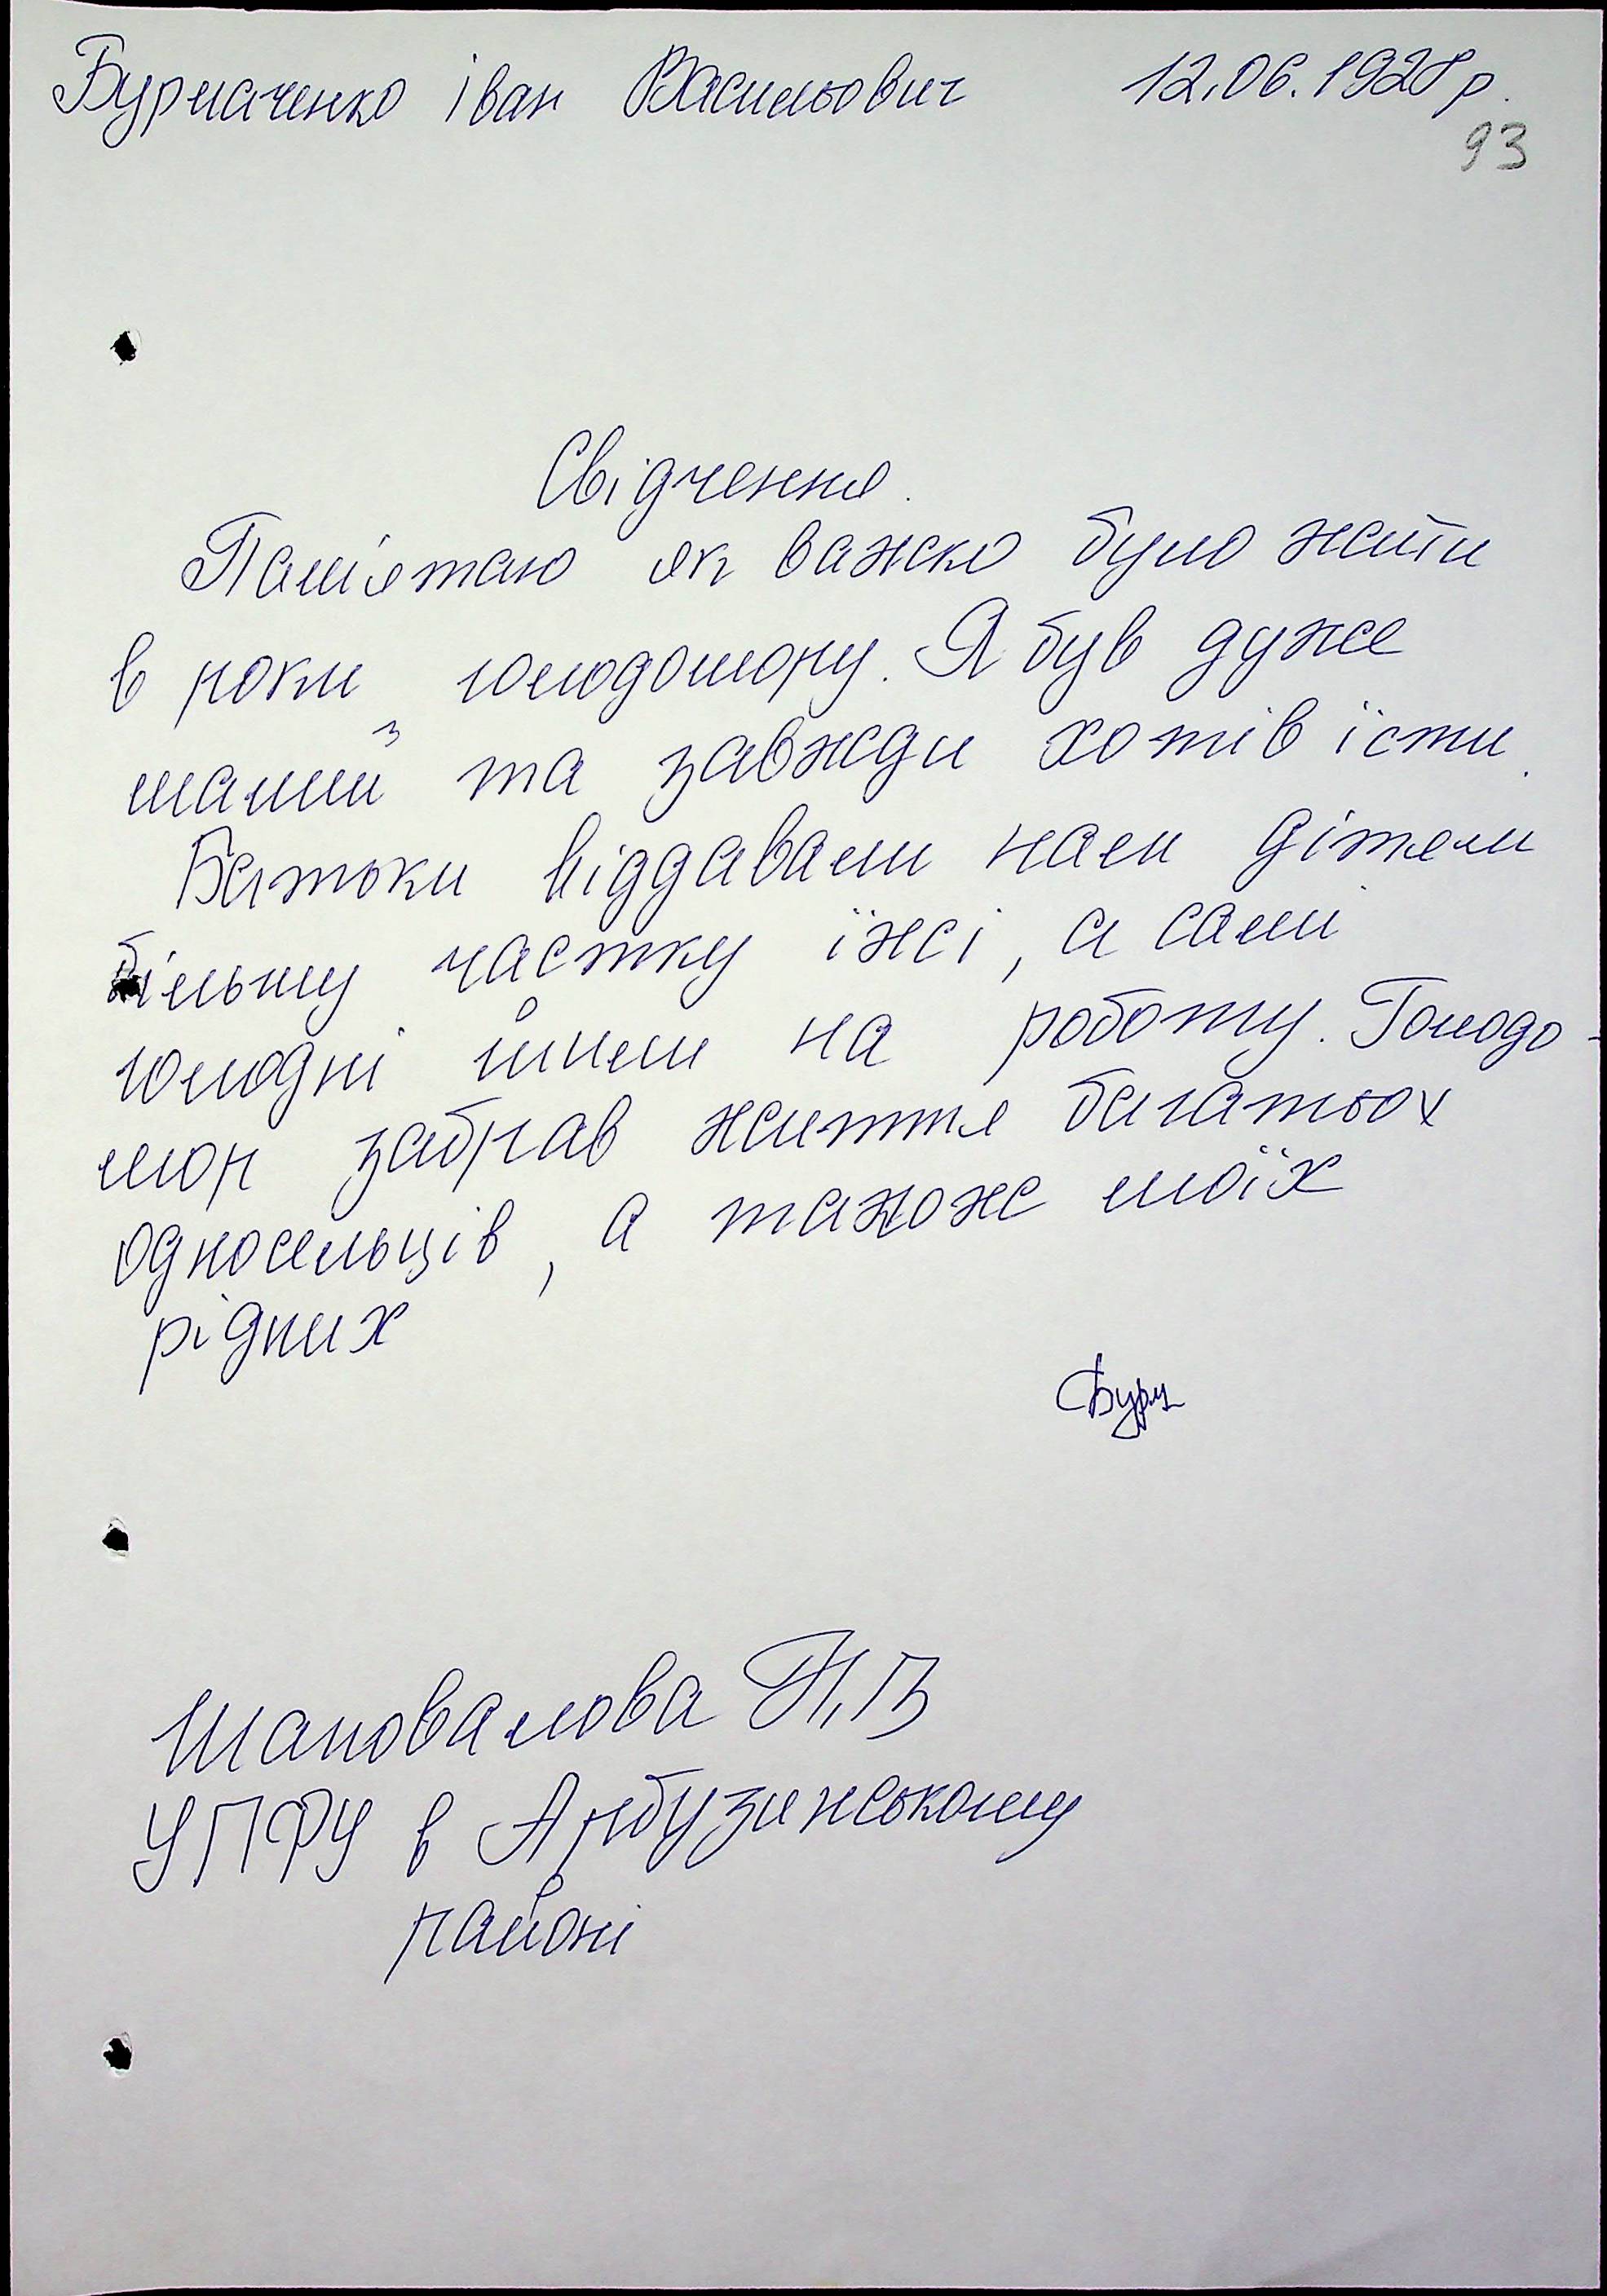 Бурмаченко Іван Васильович 12.06.1928 р.
93
Свідчення.
Пам'ятаю як важко було жити
в роки голодомору. Я був дуже
малий та завжди хотів їсти.
Батьки віддавали нам дітям
більшу частку їжі, а самі
голодні йшли на роботу. Голодо-
мор забрав життя багатьох
односельців, а також моїх
рідних
Бурм
Шаповалова Н.В
УПФУ в Арбузинському
районі